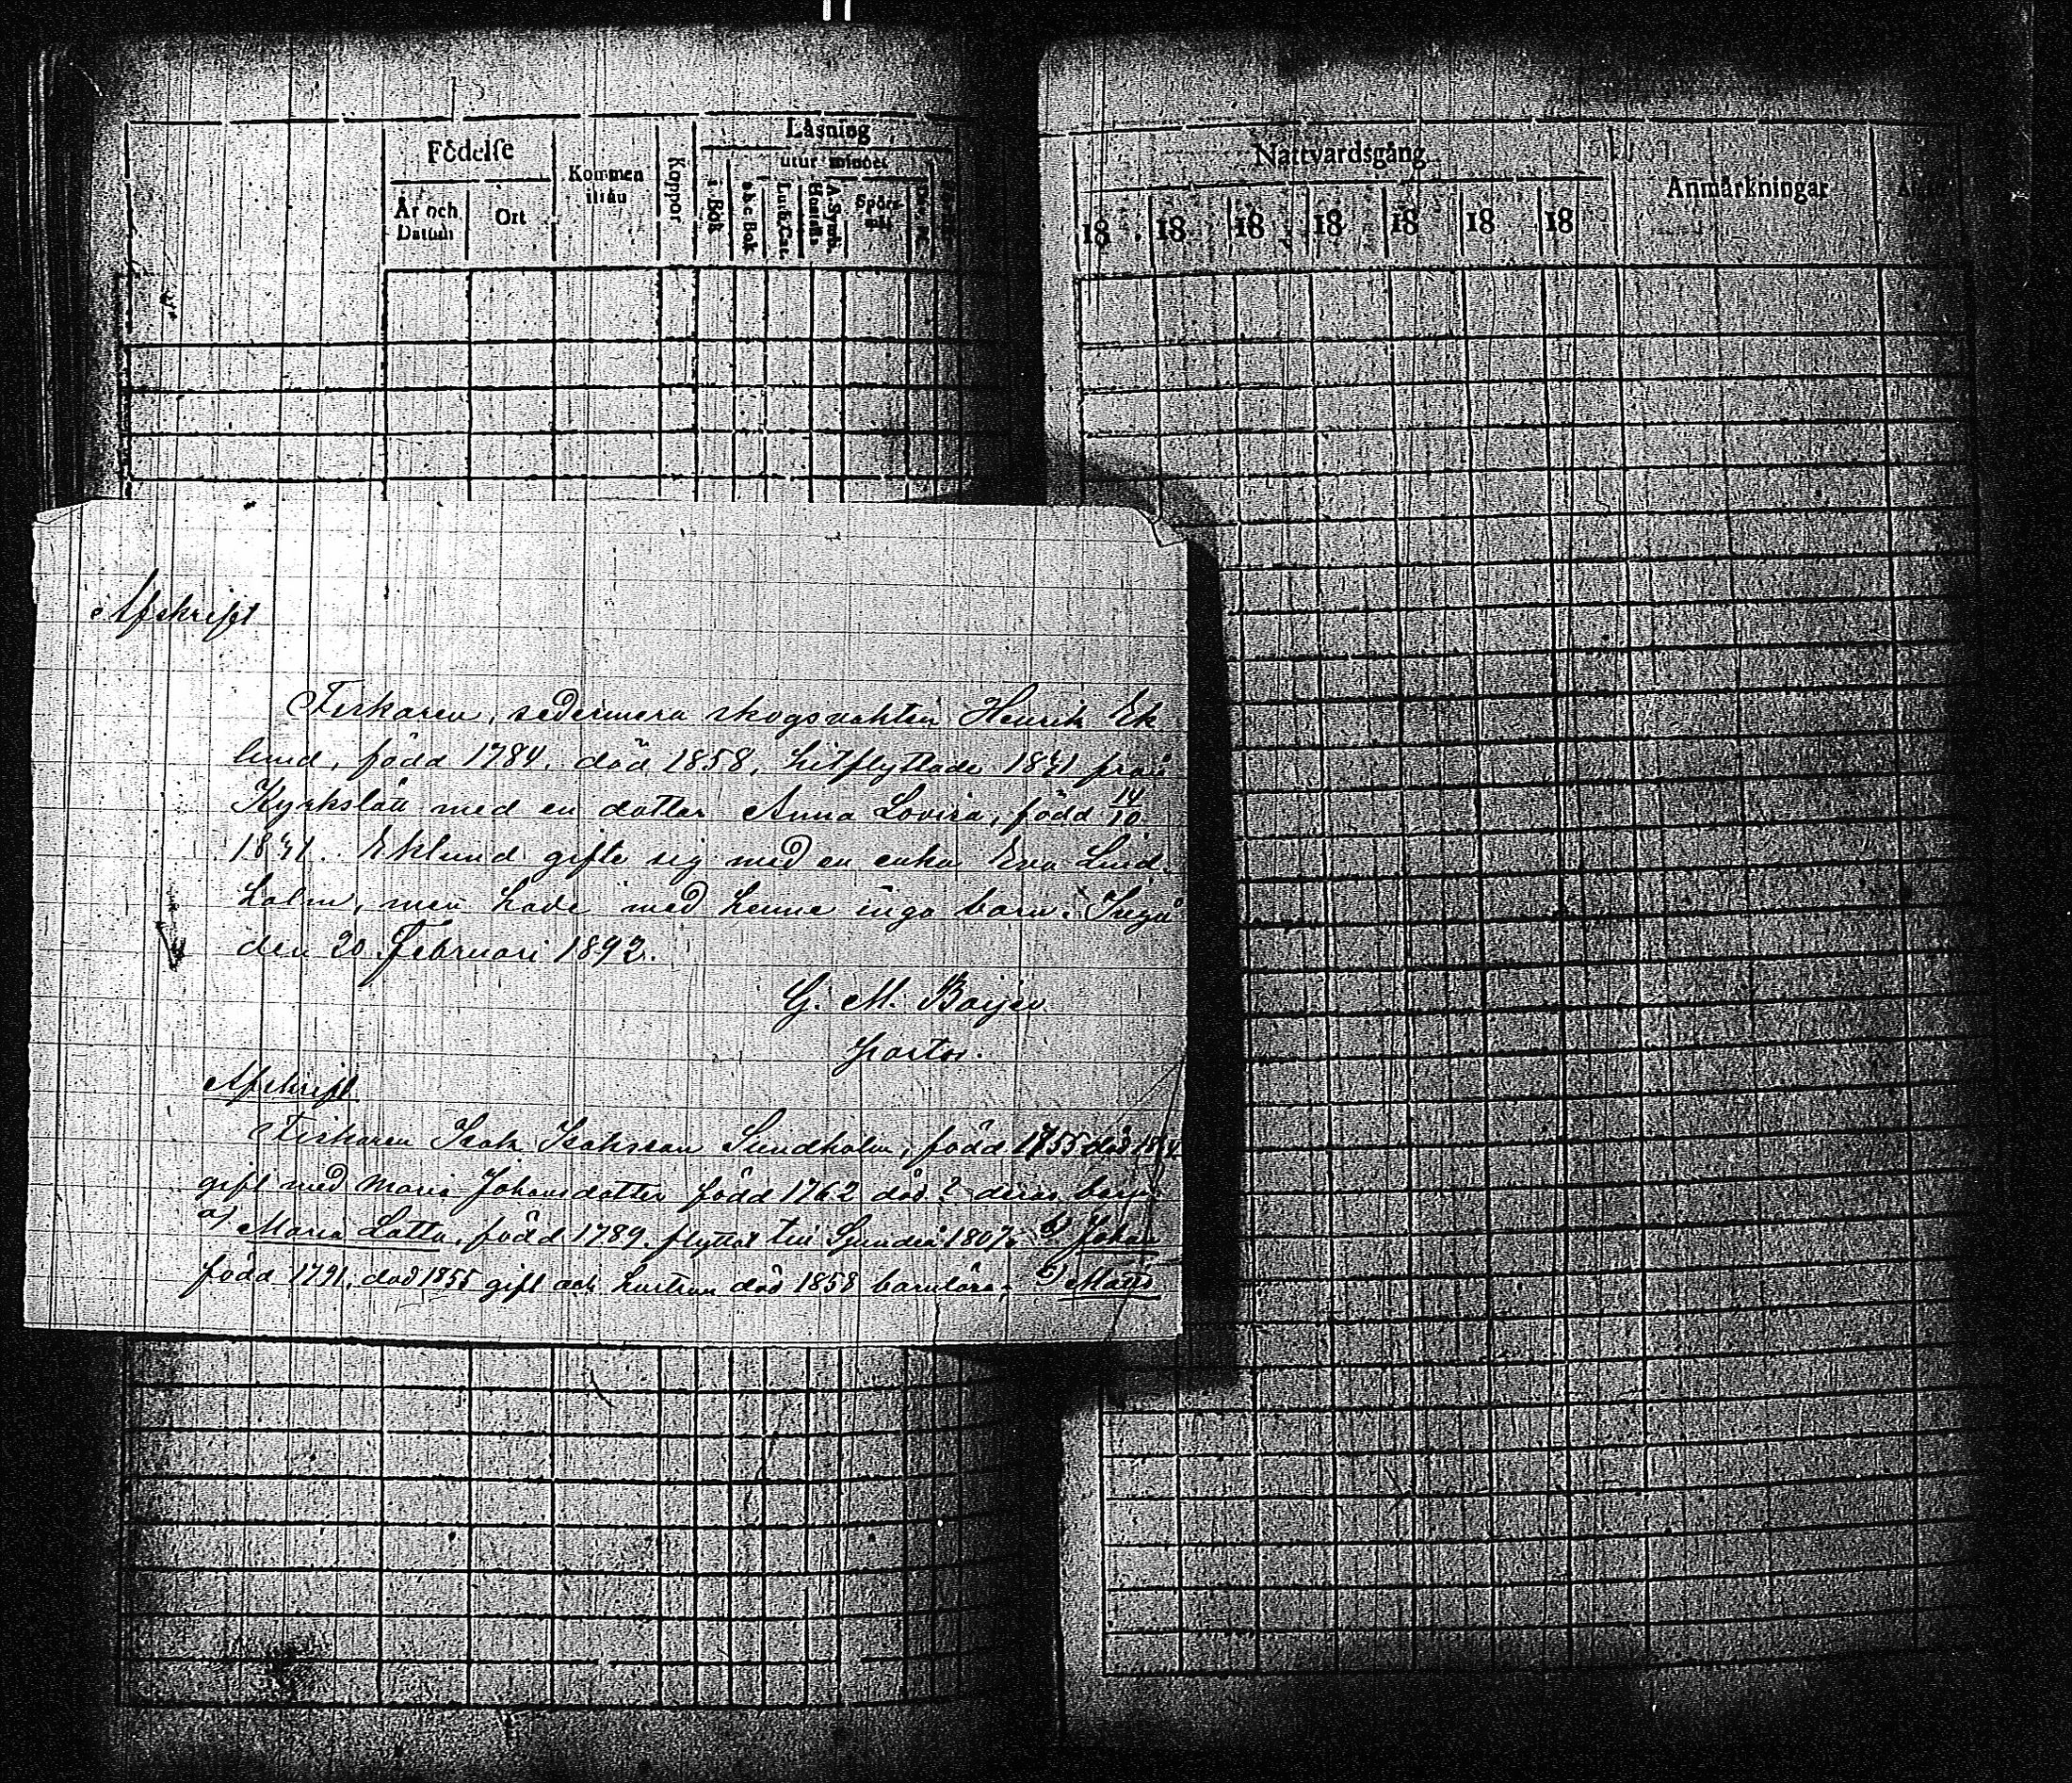 Födelse
År och Datum
Ort
Kommen
Koppor
Läsning
utur minnet
i Bok
a b c Bok
Luth. Cat.
Hustafla
A. Symb.
Nattvardsgång
18 18 18 18 18 18 18
Anmärkningar
Afskrift
Fiskaren, sedermera skogsvakten Henrik Ek
lund, född 1784, död 1858, hitflyttade 1841 från
Kyrkslätt med en dotter Anna Lovisa, född 14/10
1841. Eklund gifte sig med en enka Eva Lind-
holm, men hade med henne inga barn. Ingå
den 20 Februari 1892.
G. M. Boijer.
pastor.
Afskrift
Fiskaren Isak Isaksson Sundholm, född 1755 död
gift med Maria Johansdotter född 1762 död ? deras barn:
a) Maria Lotta, född 1789. flyttat till Sjundeå 1807. b) Johan
född 1791, död 1855 gift och hustrun död 1858 barnlösa; c) Matts